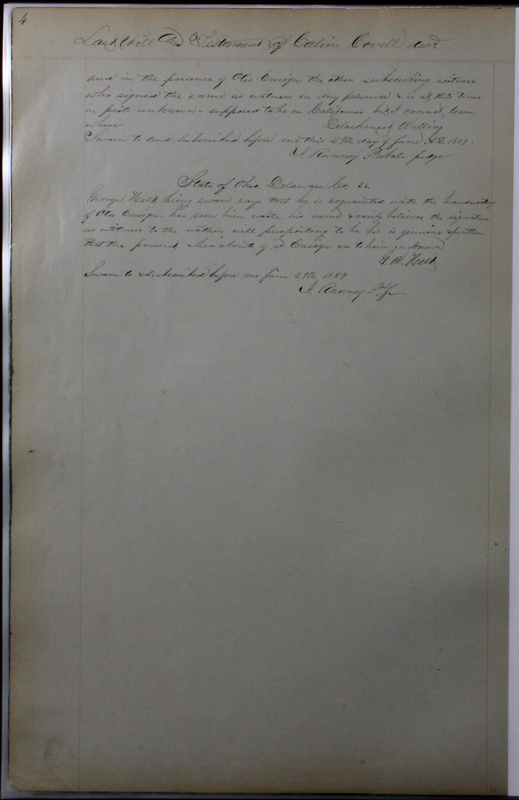 4
Last Will and Testament of Calvin Covell decd.
and in the presence of Otis Ensign the other subscribing witness
who signed the same as witness in my presence & is at this time
in parts unknown - supposed to be in California but I cannot learn
where
Walling
Sworn to and subscribed before me this 29th day of June AD 1859.
I Ranney Probate judge
State of Ohio, Delaware Co. ss.
George being sworn says that he is acquainted with the handwriting
of Otis Ensign has seen him write his name & verily believes the signature
as witness to the within will purporting to be his is genuine & further
that the present whereabouts of sd Ensign is to him unknown
G. W.
Sworn to & subscribed before me June 29th 1859
I. Ranney P. J.